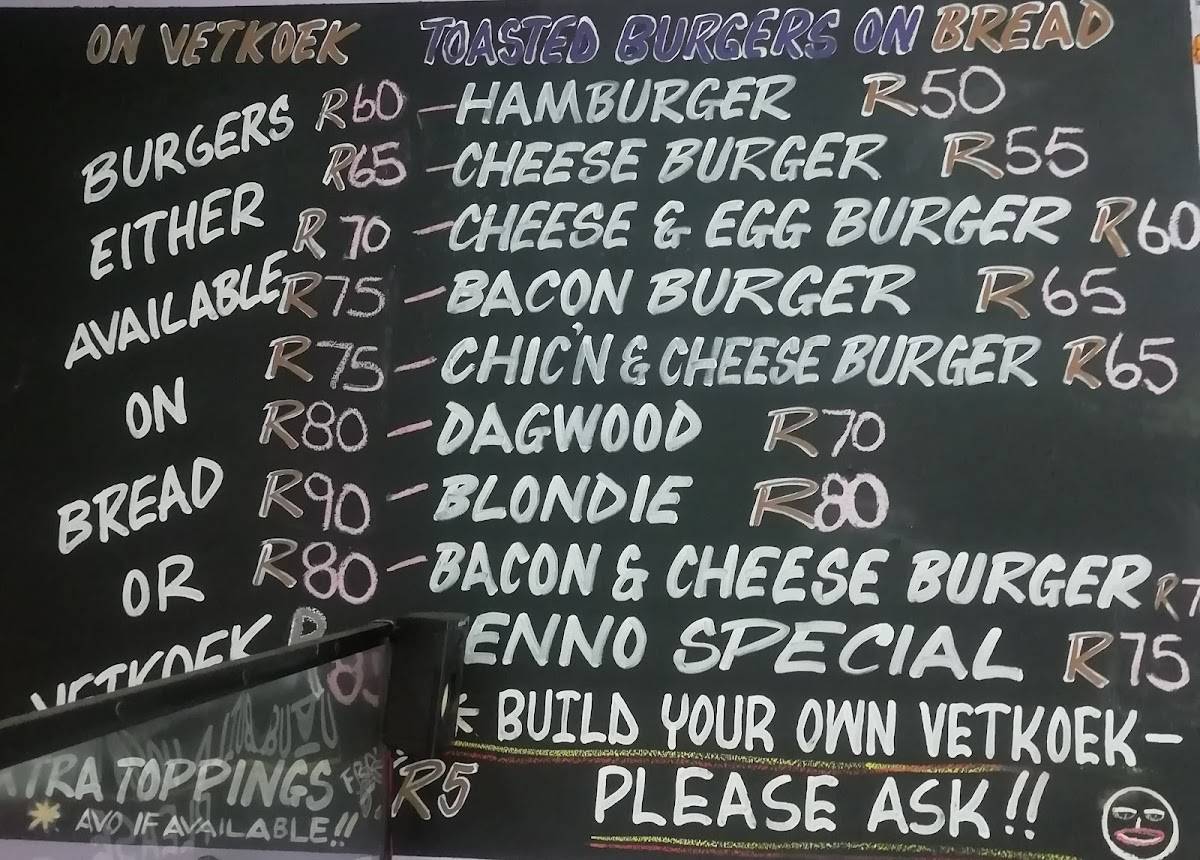 ON VETKOEK TOASTED BURGERS ON BREAD
R60 - HAMBURGER R50
BURGERS
R65 - CHEESE BURGER R55
EITHER
R70 - CHEESE & EGG BURGER R60
AVAILABLE
R75 - BACON BURGER R65
R75 - CHIC'N & CHEESE BURGER R65
ON
R80 - DAGWOOD R70
BREAD
R90 - BLONDIE R80
OR
R80 - BACON & CHEESE BURGER R7
VETKOEK
R85 ENNO SPECIAL R75
* BUILD YOUR OWN VETKOEK -
PLEASE ASK!!
TRA TOPPINGS R5
* AVO IF AVAILABLE!!